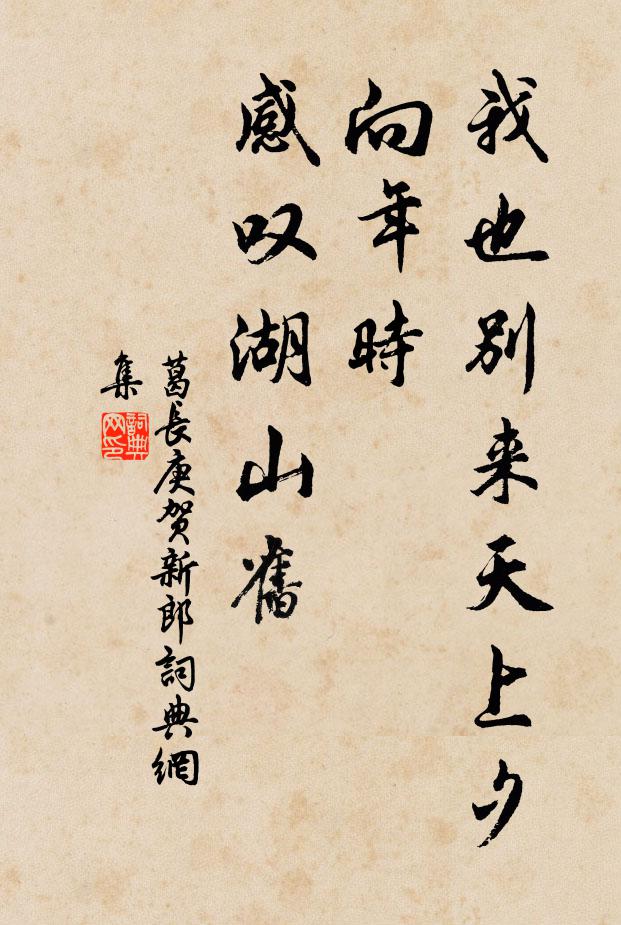 我也别来天上少
向年時
感叹湖山舊
葛長庚贺新郎詞典網
集
詞典
网印